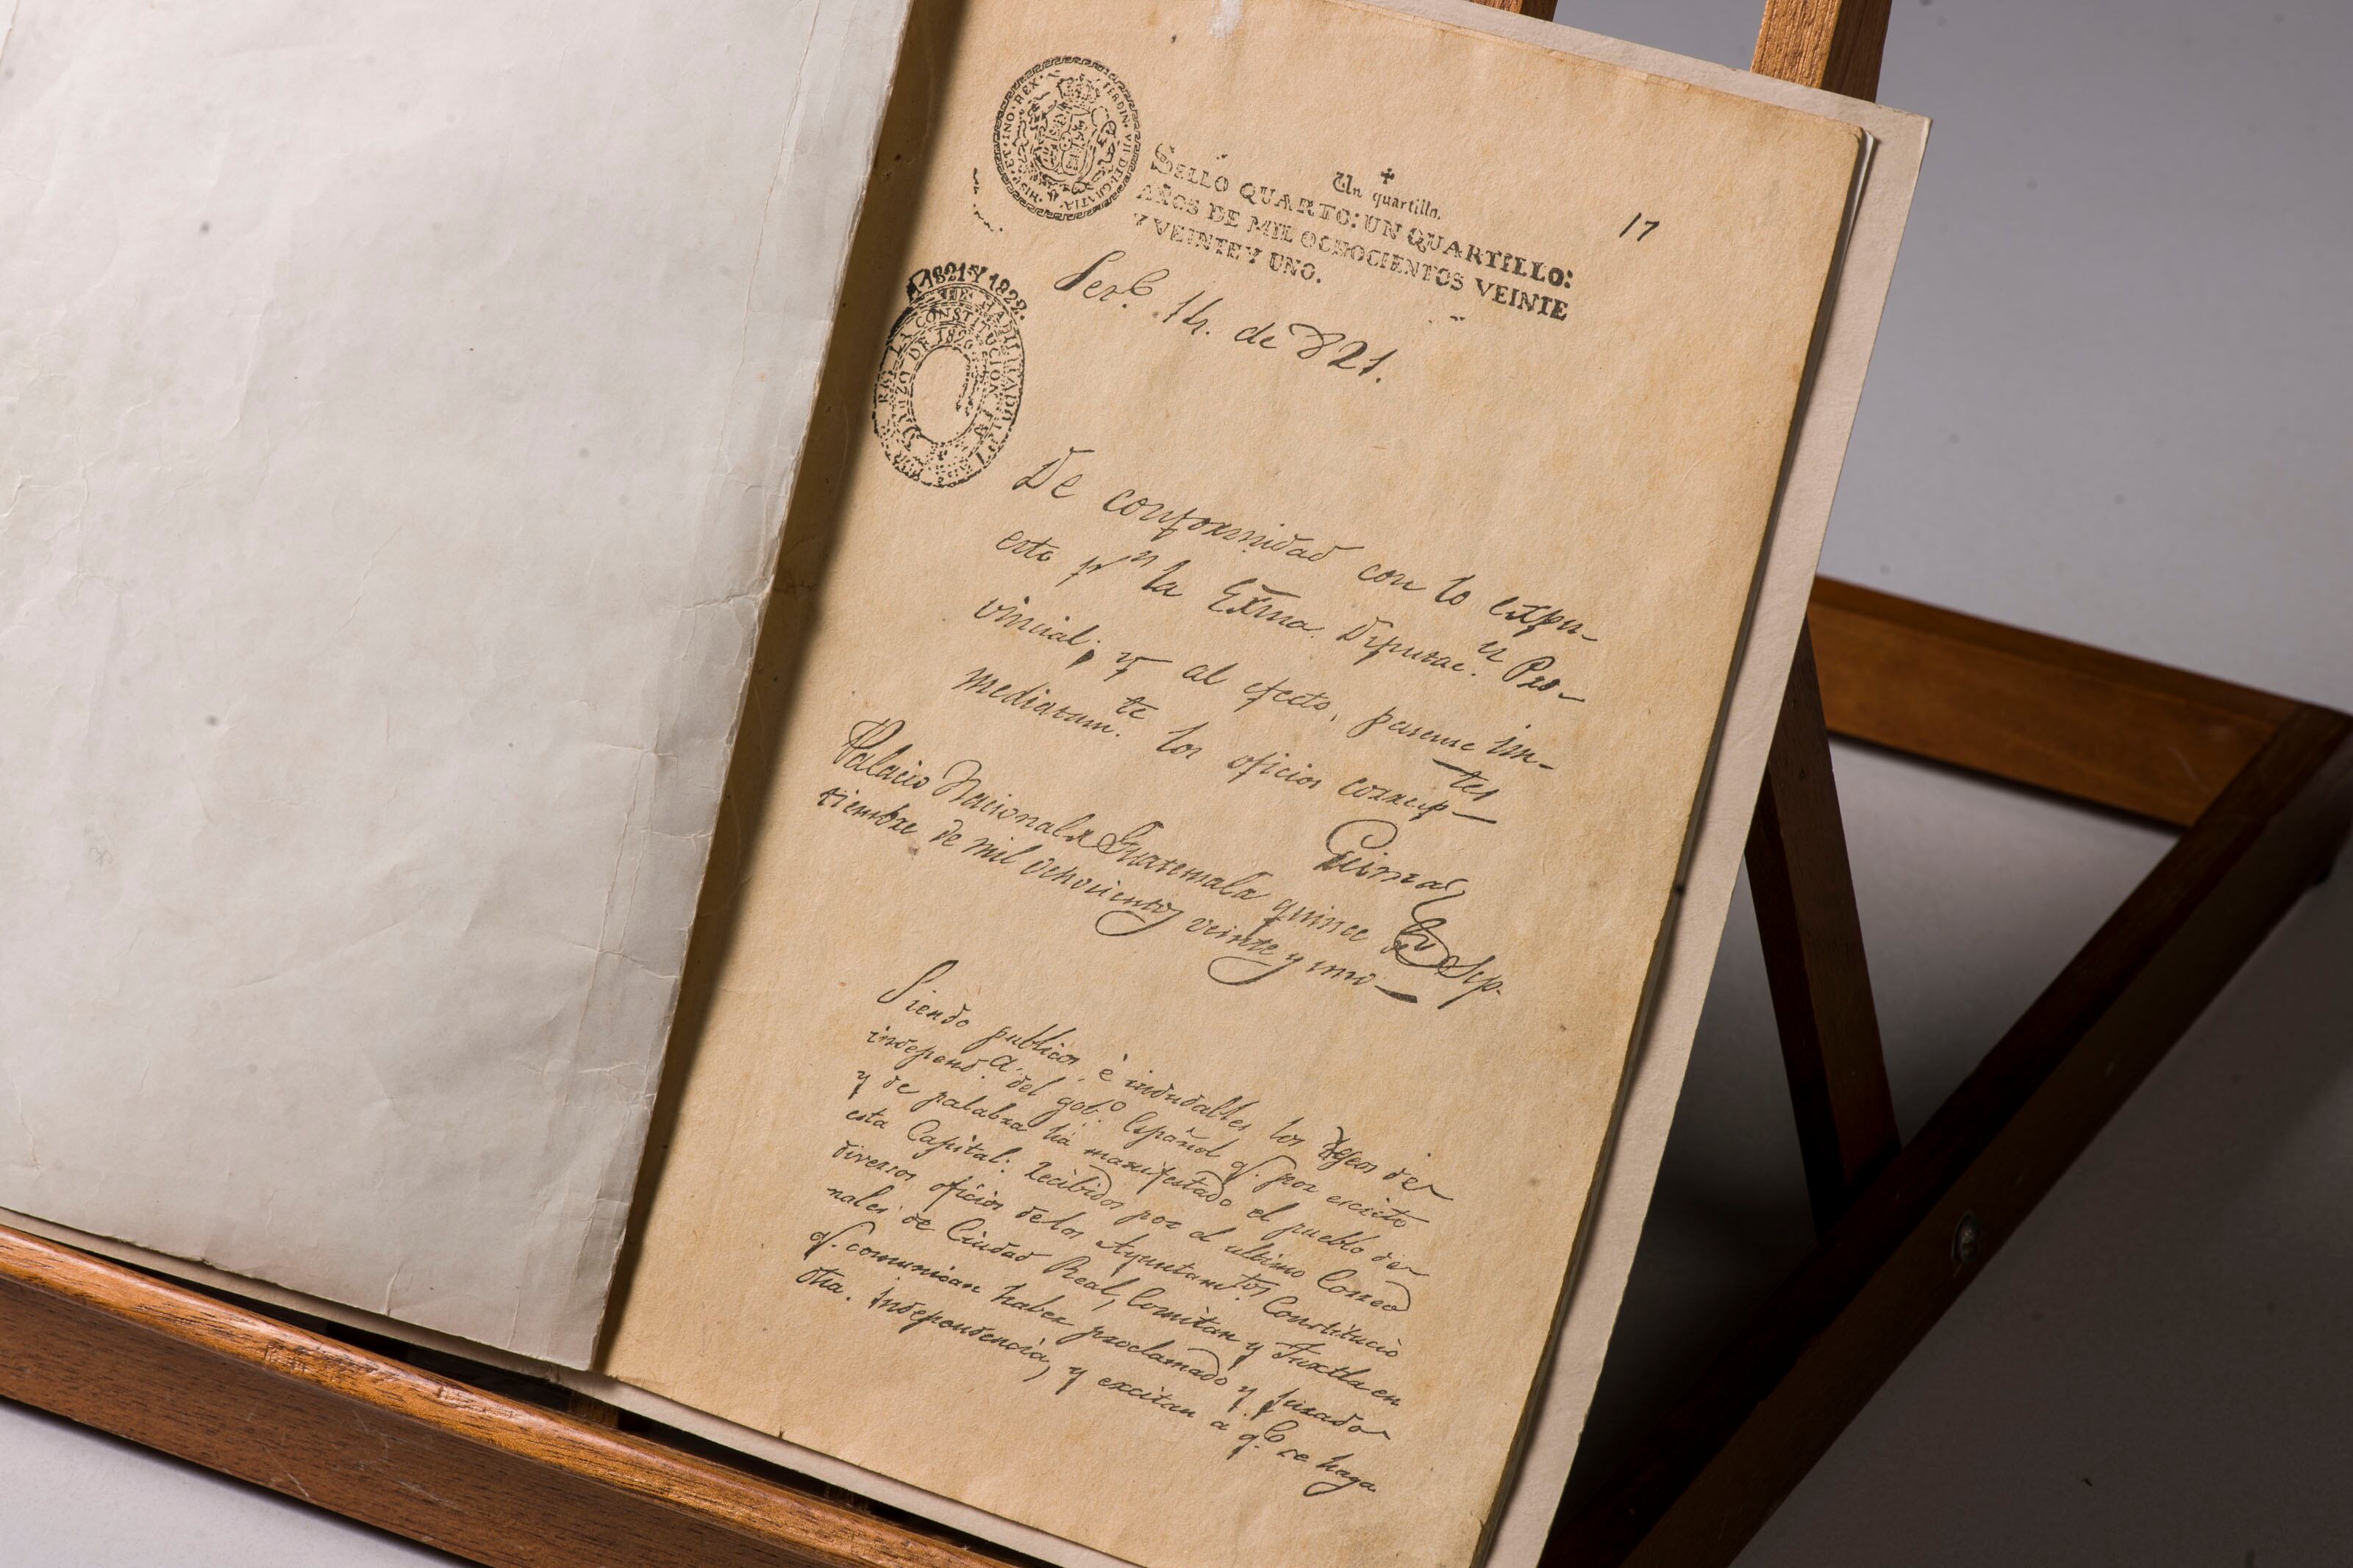 FERDIN. VII. DEI. GRATIA. HISP. ET. IND. REX.
Un quartillo.
SELLO QUARTO: UN QUARTILLO:
AÑOS DE MIL OCHOCIENTOS VEINTE
Y VEINTE Y UNO.
17
1821 Y 1822.
HABILITADO
POR EL REY LA CONSTITUCION
DE 1820
14. de 821.
De conformidad con lo expu-
esto pr. la Exma. Diputac.n Pro-
vincial; y al efecto, pasense in-
mediatam.te los oficios corresp-
tes
Palacio Nacional de Guatemala quince de Sep-
tiembre de mil ochocientos veinte y uno
Siendo publicos é indudables los deseos de
independ.a del gob.o Español q. por escrito
y de palabra há manifestado el pueblo de
esta Capital: recibidos por el ultimo Correo
diversos oficios de los Ayuntam.tos Constitucio
nales de Ciudad Real, Comitan y Tuxtla en
q. comunican haber proclamado y jurado
dha. independencia, y excitan a q.e se haga